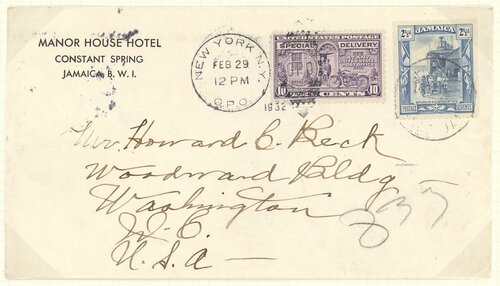 MANOR HOUSE HOTEL
CONSTANT SPRING
JAMAICA, B. W. I.
NEW YORK, N.Y.
FEB 29
12 PM
G.P.O.
1932
UNITED STATES POSTAGE
SPECIAL DELIVERY
10 CENTS 10
JAMAICA
2½ 2½
Mr. Howard C. Beck
Woodward Bldg -
Washington
D. C.
U. S. A -